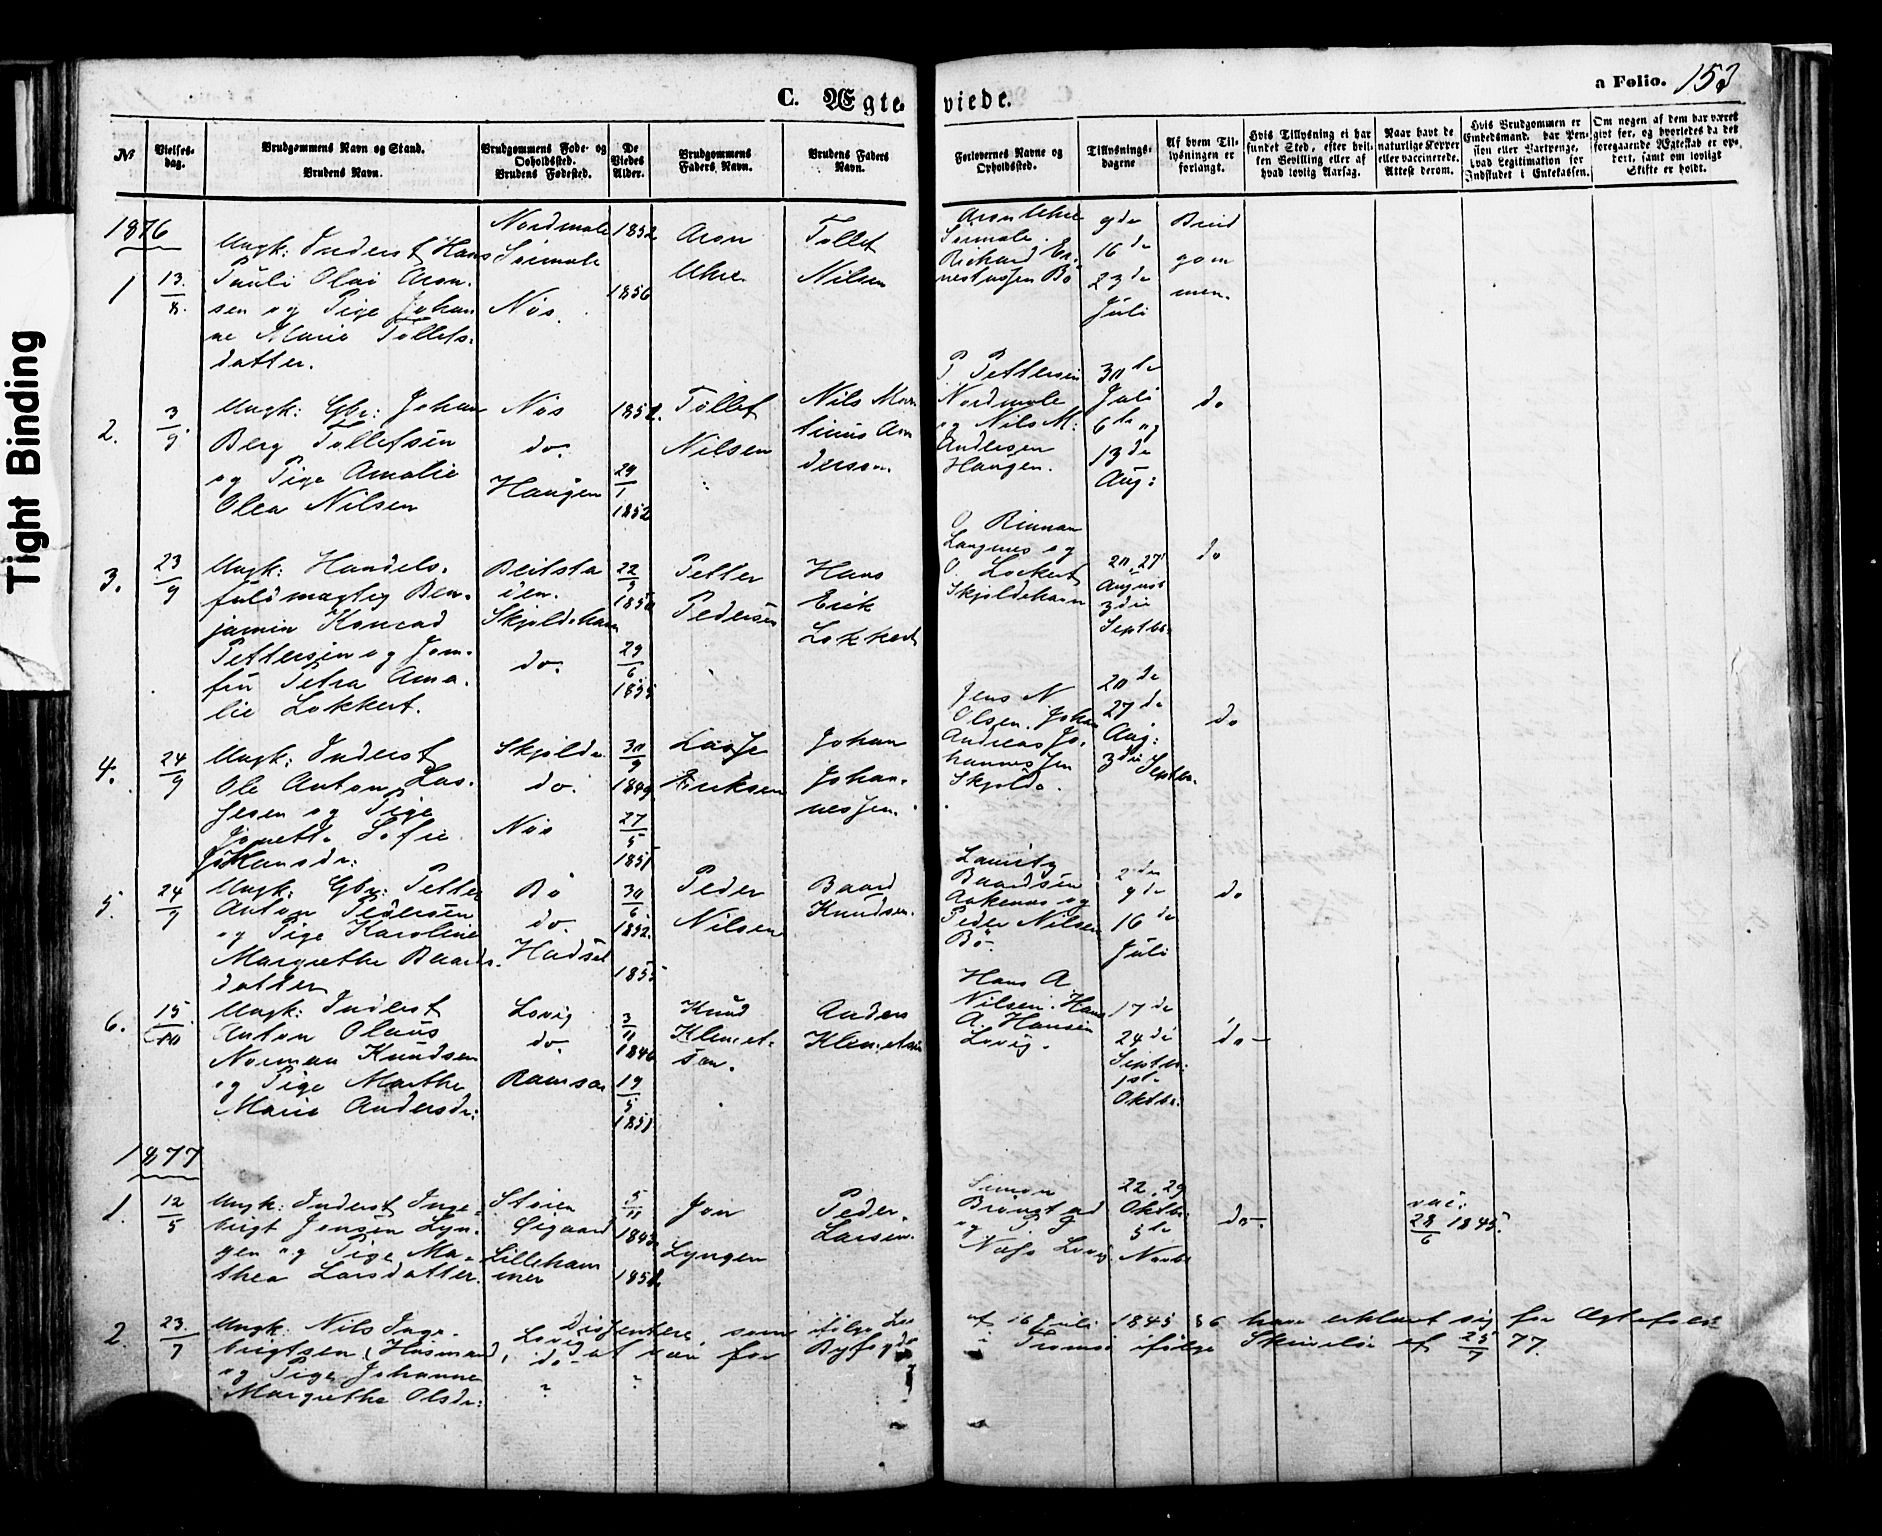 Tight Binding
C. Ægte-
viede.
a Folio. 153
No
Vielses-
dag.
Brudgommens Navn og Stand.
Brudens Navn.
Brudgommens Føde- og
Opholdssted.
Brudens Fødested.
De
Viedes
Alder.
Brudgommens
Faders Navn.
Brudens Faders
Navn.
Forlovernes Navne og
Opholdssted.
Tillysnings-
dagene
Af hvem Til-
lysningen er
forlangt.
Hvis Tillysning ei har
fundet Sted, efter hvil-
ken Bevilling eller af
hvad lovlig Aarsag.
Naar havt de
naturlige Kopper
eller vaccinerede.
Attest derom.
Hvis Brudgommen er
Embedsmand, har Pen-
sion eller Vartpenge,
hvad Legitimation for
Indskudet i Enkekassen.
Om nogen af dem har været
gift før, og hvorledes da det
foregaaende Ægteskab er op-
hørt, samt om lovligt
Skifte er holdt.
1876
1
13/8.
Ungk: Inderst Hans
Pauli Olai Aron-
sen og Pige Johan
ne Marie Tollefs-
datter.
Nordmele
Sörmele
Nös.
1852
1856
Aron
Uhre
Tollef
Nilsen
Aron Uhre
Sörmele.
Richard Er-
nestussen Bö
9de
16de
23de
Juli
Brud
gom
men.
2.
3/9.
Ungk: Gbr: Johan
Berg Tollefsen
og Pige Amalie
Olea Nilsen
Nös
do.
Haugen
1852.
29/1
1852
Tollef
Nilsen
Nils Mar
tinus An
dersen.
P Pettersen
Nordmele
og Nils M:
Andersen
Haugen.
30te
Juli
6te og
13de
Aug:
do
3.
23/9
Ungk: Handels-
fuldmægtig Ben-
jamin Konrad
Pettersen og Jom-
fru Petra Ama-
lie Lokkert.
Beitsta
den.
Skjoldehavn
do.
22/9
1850
29/6
1855
Petter
Pedersen
Hans
Erik
Lokkert
O Rinnan
Langnes og
O Lockert
Skjoldehavn
20, 27
August
3die
Septbr.
do
4.
24/9
Ungk: Inderst
Ole Anton Las-
sesen og Pige
Jonette Sofie
Johansdr:
Skjolde
do.
Nös
30/9
1849.
27/5
1851
Lasse
Eriksen
Johan
Johan-
nessen.
Jens N
Olsen. Johan
Andreas Jo-
hannessen
Skjolde.
20de
27de
Aug:
3die Septbr.
do
5.
24/9
Ungk: Gbr: Petter
Anton Pedersen
og Pige Karoline
Margrethe Baards-
datter
Bö
do.
Hadsel
30/6
1852.
1855
Peder
Nilsen
Baard
Knudsen.
Lauritz
Baardsen
Aakenes og
Peder Nilsen
Bö.
2den
9de
16de
Juli
do
6.
15/10
Ungk: Inderst
Anton Olaus
Norman Knudsen
og Pige Marthe
Marie Andersdr:
Lovig
do.
Ramsaa
3/11
1846
19/5
1851
Knud
Klemet-
sen.
Anders
Klemetsen
Hans A
Nilsen. Hans
A. Hansen
Lovig.
17de
24de
Septbr:
1ste
Oktbr.
do
1877
1.
12/5
Ungk: Inderst Inge-
brigt Jonsen Lyn-
gen og Pige Ma-
thea Larsdatter.
Stören
Öegaard
Lilleham
mer
5/11
1843
1852
Jon
Lyngen
Peder
Larsen.
Simon
22, 29
Oktbr:
5te
Novbr
do
vac:
28/6 1845.
2.
23./7
Ungk: Nils Inge-
brigtsen, Husmand,
og Pige Johanne
Margrethe Olsdr:
Lovig
do
Disentere, som ifölge Lov af 16 Juli 1845 § 6 have erklæret sig for Ægtefolk
at være for Byfogden i Tromsö ifölge Skrivelse af 25/7 77.